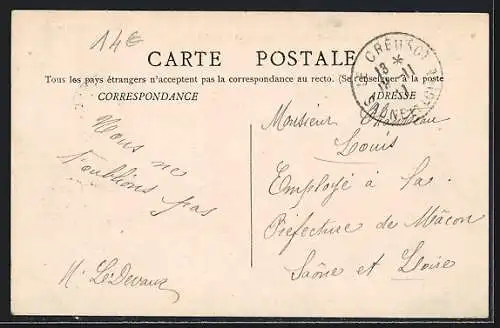 14€
CARTE POSTALE
Tous les pays étrangers n'acceptent pas la correspondance au recto. (Se renseigner à la poste
CORRESPONDANCE
ADRESSE
LE CREUSOT
SAONE-ET-LOIRE
Nous ne
t'oublions pas
Monsieur
Louis
Employé à la
Préfecture de Mâcon
Saône et Loire